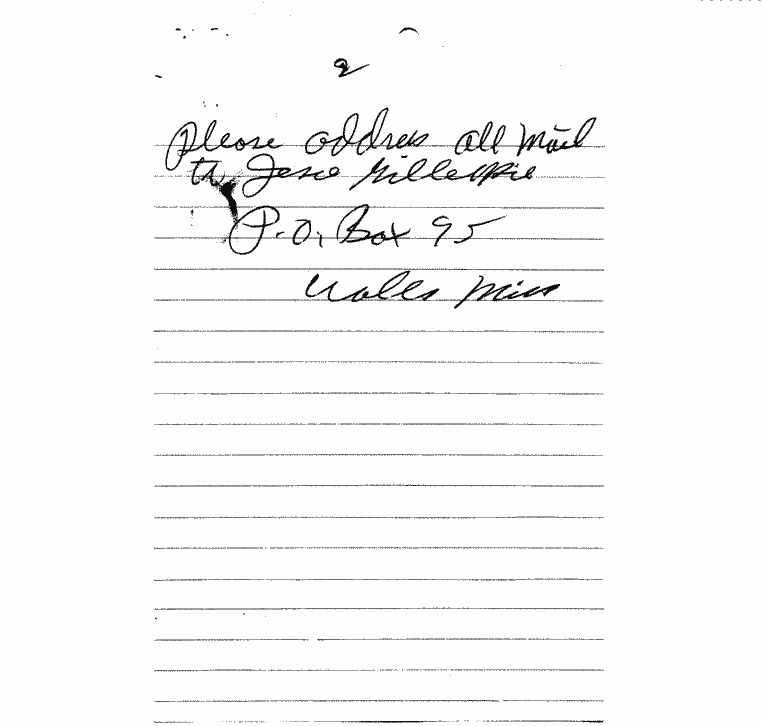 2
Please address all mail
to Jesse Gillespie
P.O. Box 95
Walls Miss